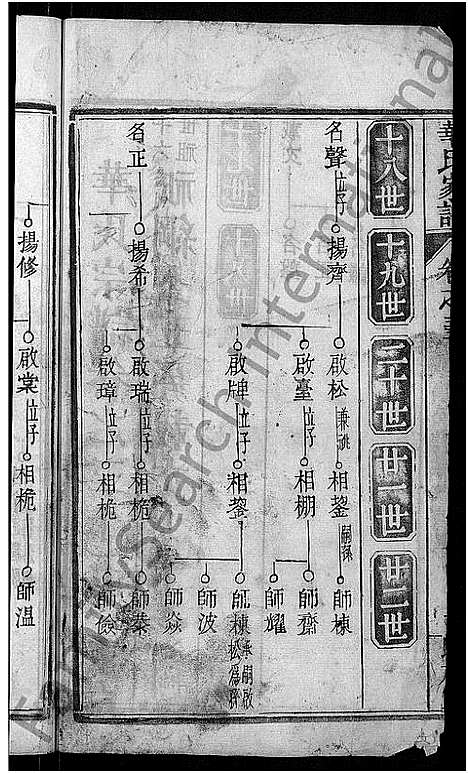 華氏家譜
十八世
十九世
二十世
廿一世
廿二世
名聲立子
揚齊
啟松兼祧
相鋆嗣孫
師棟
啟臺立子
相棚
師齋
師耀
啟牌立子
相鋆
師棟兼嗣啟松為孫
師波
師焱
名正
揚希
啟瑞立子
相桅
師蓁
啟璋立子
相桅
師儉
揚修
啟棠立子
相桅
師溫
FamilySearch International